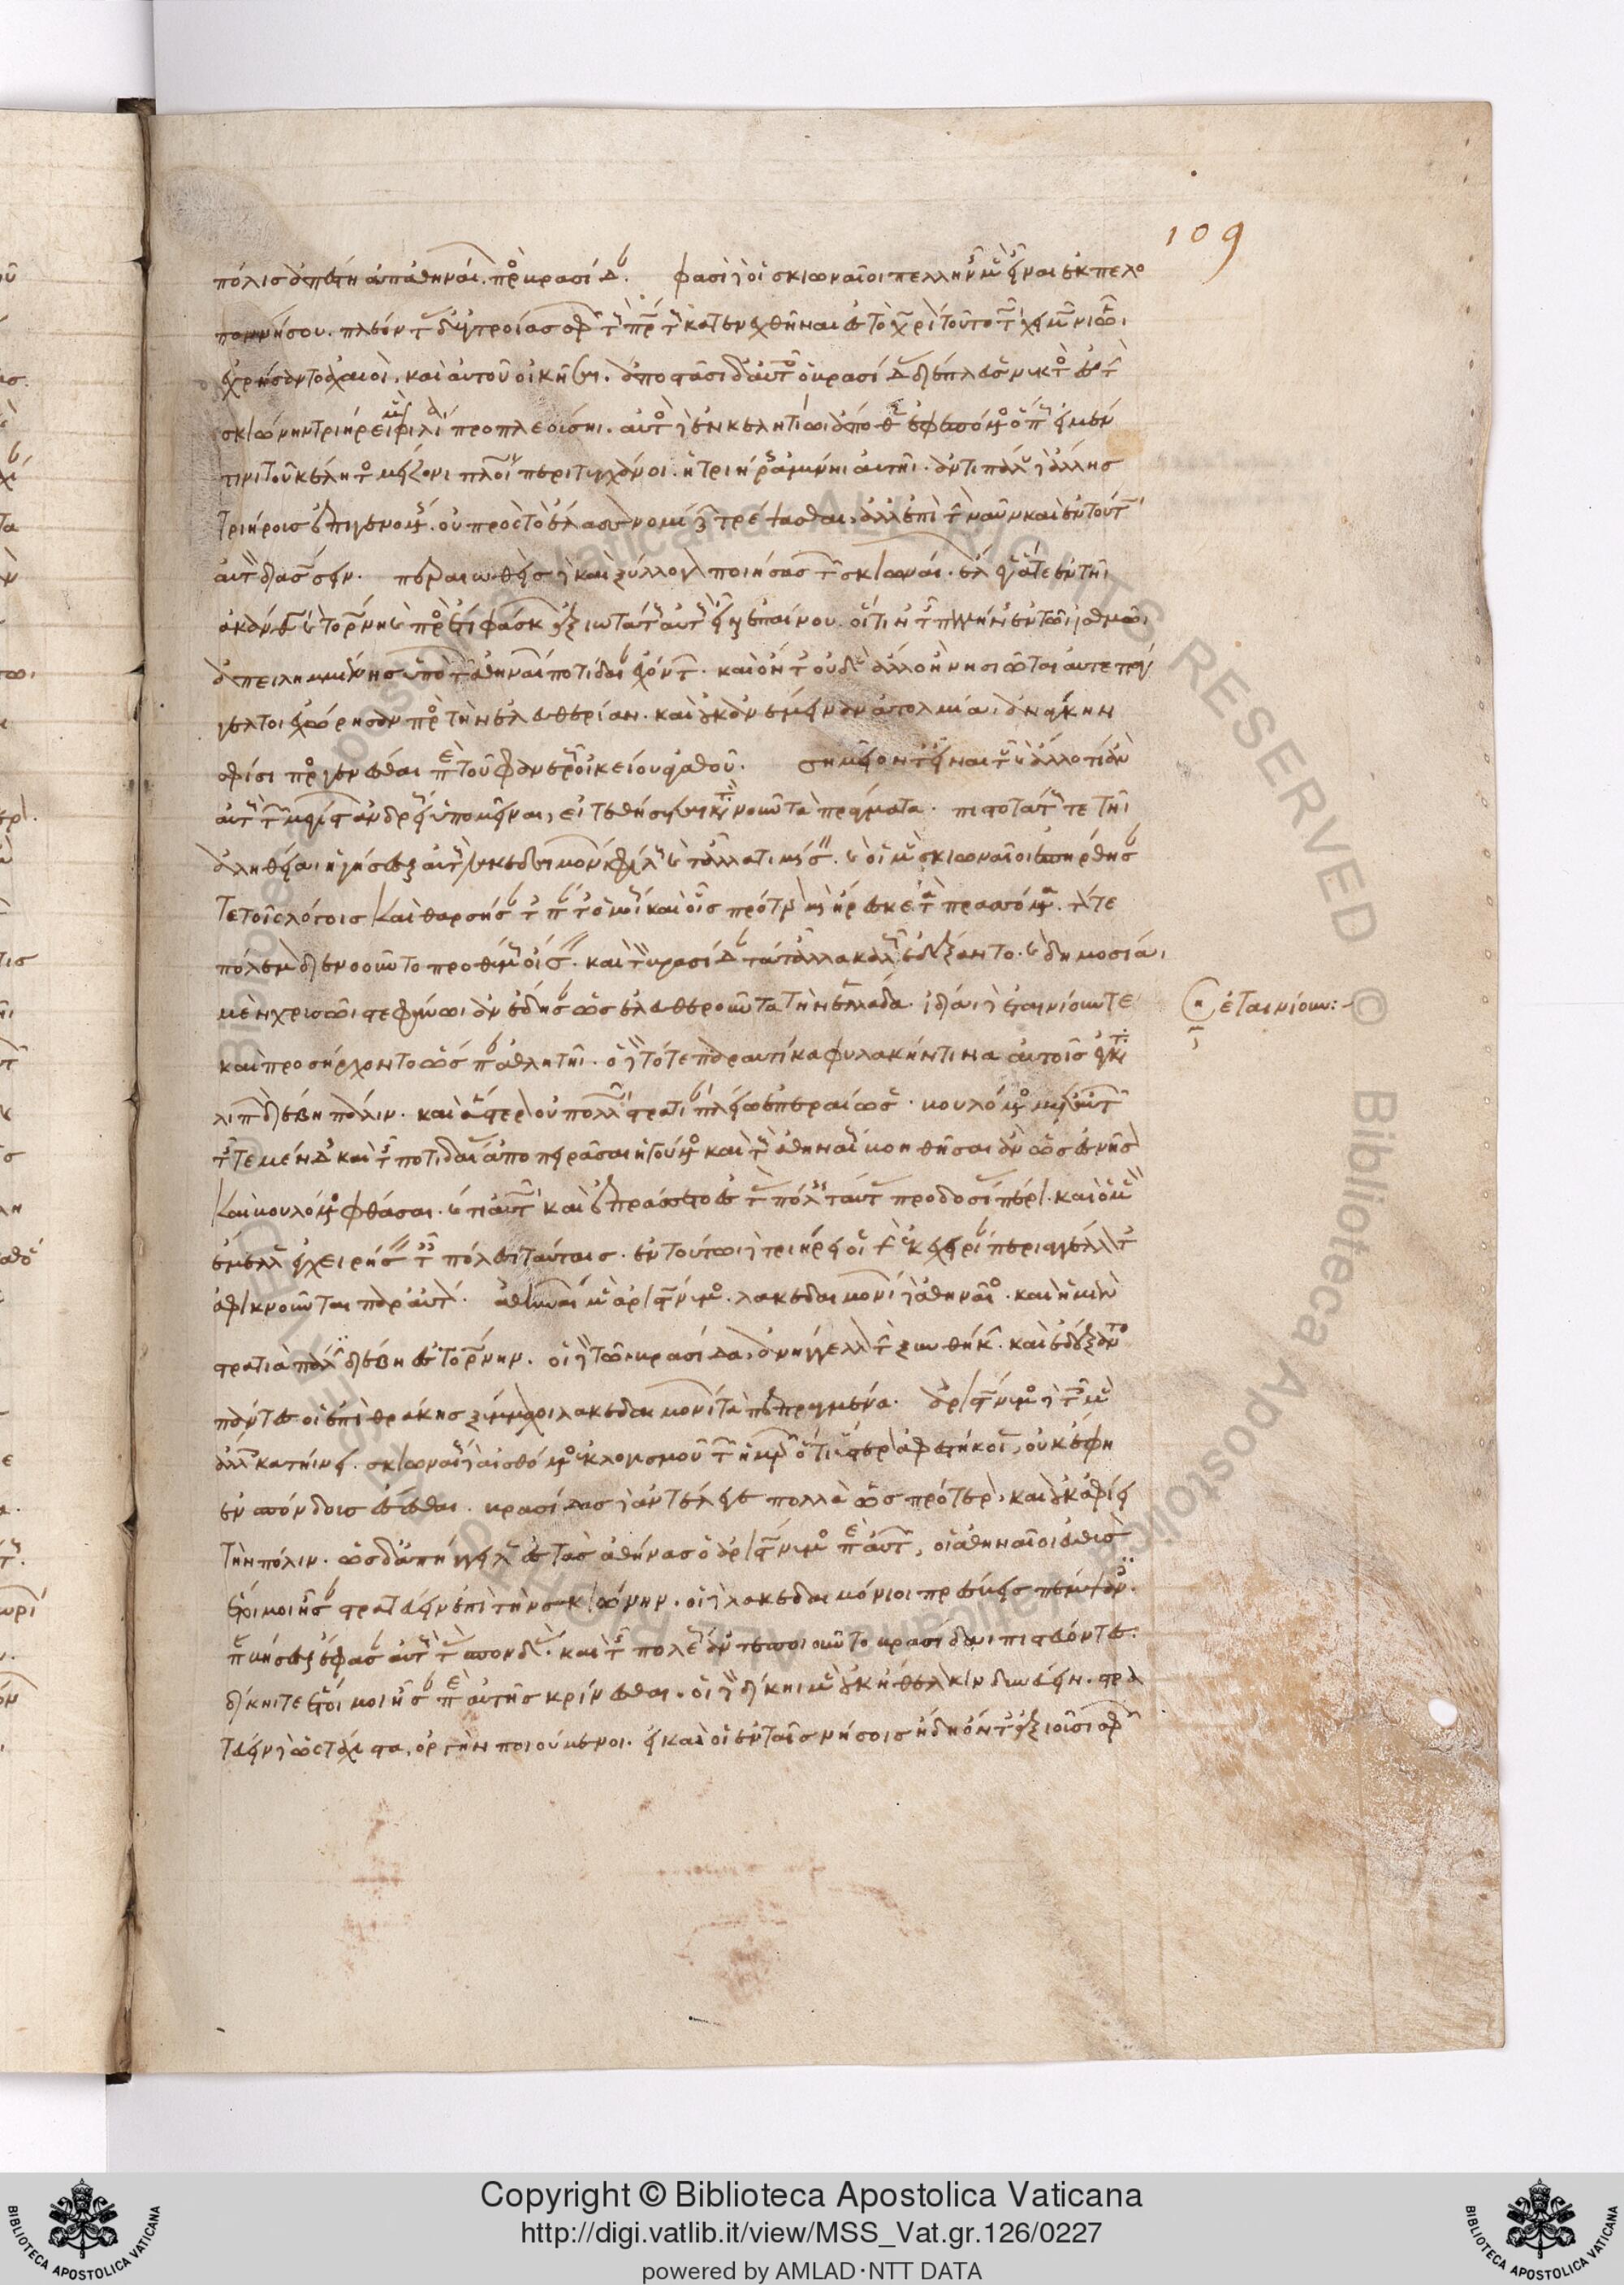 109
πόλις ἀπέστη ἀπ' ἀθηναίων πρὸς βρασίδαν. φασὶ δὲ οἱ σκιωναῖοι πελληνῆς μὲν εἶναι ἐκ πελο
ποννήσου. πλέοντας δ' ἀπὸ τροίας σφῶν τοὺς πρώτους κατενεχθῆναι ἐς τὸ χωρίον τοῦτο τῶι χειμῶνι ὧι
ἐχρήσαντο ἀχαιοὶ, καὶ αὐτοῦ οἰκῆσαι. ἀποστᾶσι δ' αὐτοῖς ὁ βρασίδας διέπλευσε νυκτὸς ἐς τὴν
σκιώνην τριήρει μὲν φιλίαι προπλεούσηι. αὐτὸς δὲ ἐν κελητίωι ἄποθεν ἐφεπόμενος ὅπως εἰ μέν
τινι τοῦ κέλητος μείζονι πλοίωι περιτυγχάνοι. ἡ τριήρης ἀμύνηι αὐτῆι. ἀντιπάλου δὲ ἄλλης
τριήρους ἐπιγενομένης. οὐ πρὸς τὸ ἔλασσον νομίζων τρέψεσθαι, ἀλλ' ἐπὶ τὴν ναῦν καὶ ἐν τούτωι
αὑτὸν διασώσειν. περαιωθεὶς δὲ καὶ ξύλλογον ποιήσας τῶν σκιωναίων. ἔλεγεν ἅ τε ἐν τῆι
ἀκάνθωι καὶ τορώνηι καὶ προσέτι φάσκων ἀξιωτάτους αὐτοὺς εἶναι ἐπαίνου. οἵτινες τῆς παλλήνης ἐν τῶι ἰσθμῶι
ἀπειλημμένης ὑπὸ ἀθηναίων ποτίδαιαν ἐχόντων. καὶ ὄντες οὐδὲν ἄλλο ἢ νησιῶται αὐτεπάγ
γελτοι ἐχώρησαν πρὸς τὴν ἐλευθερίαν. καὶ οὐκ ἀνέμειναν ἀτολμίαι ἀνάγκην
σφίσι προσγενέσθαι περὶ τοῦ φανερῶς οἰκείου ἀγαθοῦ. σημεῖόν τ' εἶναι τοῦ καὶ ἄλλο τι ἂν
αὐτοὺς τῶν μεγίστων ἀνδρείως ὑπομεῖναι, εἰ τεθήσεται κατὰ νοῦν τὰ πράγματα. πιστοτάτους τε τῆι
ἀληθείαι ἡγήσεσθαι αὐτοὺς λακεδαιμονίων φίλους καὶ τἆλλα τιμήσειν. καὶ οἱ μὲν σκιωναῖοι ἐπήρθησάν
τε τοῖς λόγοις καὶ θαρσήσαντες πάντες ὁμοίως καὶ οἷς πρότερον μὴ ἤρεσκε τὰ πρασσόμενα. τόν τε
πόλεμον διενοοῦντο προθύμως οἴσειν. καὶ τὸν βρασίδαν τά τ' ἄλλα καλῶς ἐδέξαντο. καὶ δημοσίαι
μὲν χρυσῶι στεφάνωι ἀνέδησαν ὡς ἐλευθεροῦντα τὴν ἑλλάδα. ἰδίαι δὲ ἐταινίουν τε
ἐταινίουν:-
καὶ προσήρχοντο ὥσπερ ἀθλητῆι. ὁ δὲ τό τε παραυτίκα φυλακήν τινα αὐτοῖς ἐγκατα
λιπὼν διέβη πάλιν. καὶ ὕστερον οὐ πολλῶι στρατιὰν πλείω ἐπεραίωσε. βουλόμενος μετ' αὐτῶν
τῆς τε μένδης καὶ τῆς ποτιδαίας ἀποπειρᾶσαι ἡγούμενος καὶ τοὺς ἀθηναίους βοηθῆσαι ἂν ὡς ἐς νῆσον
καὶ βουλόμενος φθάσαι. καί τι αὐτῶι καὶ ἐπράσσετο ἐς τὰς πόλεις ταύτας προδοσίας πέρι. καὶ ὁ μὲν
ἔμελλεν ἐγχειρήσειν ταῖς πόλεσι ταύταις. ἐν τούτωι δὲ τριήρει οἱ τὴν ἐκεχειρίαν περιαγγέλλοντες
ἀφικνοῦνται παρ' αὐτόν. ἀθηναίων μὲν ἀριστώνυμος. λακεδαιμονίων δὲ ἀθήναιος. καὶ ἡ μὲν
στρατιὰ πάλιν διέβη ἐς τορώνην. οἱ δὲ τῶι βρασίδαι ἀνήγγελλον τὴν ξυνθήκην. καὶ ἐδέξαντο
πάντες οἱ ἐπὶ θράκης ξύμμαχοι λακεδαιμονίων τὰ πεπραγμένα. ἀριστώνυμος δὲ τοῖς μὲν
ἄλλοις κατήινει. σκιωναίους δὲ αἰσθόμενος ἐκ λογισμοῦ τῶν ἡμερῶν ὅτι ὕστερον ἀφεστήκοιεν, οὐκ ἔφη
ἐνσπόνδους ἔσεσθαι. βρασίδας δὲ ἀντέλεγε πολλὰ ὡς πρότερον, καὶ οὐκ ἀφίει
τὴν πόλιν. ὡς δ' ἀπήγγελλεν ἐς τὰς ἀθήνας ὁ ἀριστώνυμος περὶ αὐτῶν, οἱ ἀθηναῖοι εὐθὺς
ἑτοῖμοι ἦσαν στρατεύειν ἐπὶ τὴν σκιώνην. οἱ δὲ λακεδαιμόνιοι πρέσβεις πέμψαντες
παραβήσεσθαι ἔφασαν αὐτοὺς τὰς σπονδάς. καὶ τῆς πόλεως ἀντεποιοῦντο βρασίδαι πιστεύοντες
δίκηι τε ἑτοῖμοι ἦσαν περὶ αὐτῆς κρίνεσθαι. οἱ δὲ δίκηι μὲν οὐκ ἤθελον κινδυνεύειν. στρα
τεύειν δὲ ὡς τάχιστα, ὀργὴν ποιούμενοι. εἰ καὶ οἱ ἐν ταῖς νήσοις ἤδη ὄντες ἀξιοῦσι σφῶν
Copyright © Biblioteca Apostolica Vaticana
http://digi.vatlib.it/view/MSS_Vat.gr.126/0227
powered by AMLAD·NTT DATA